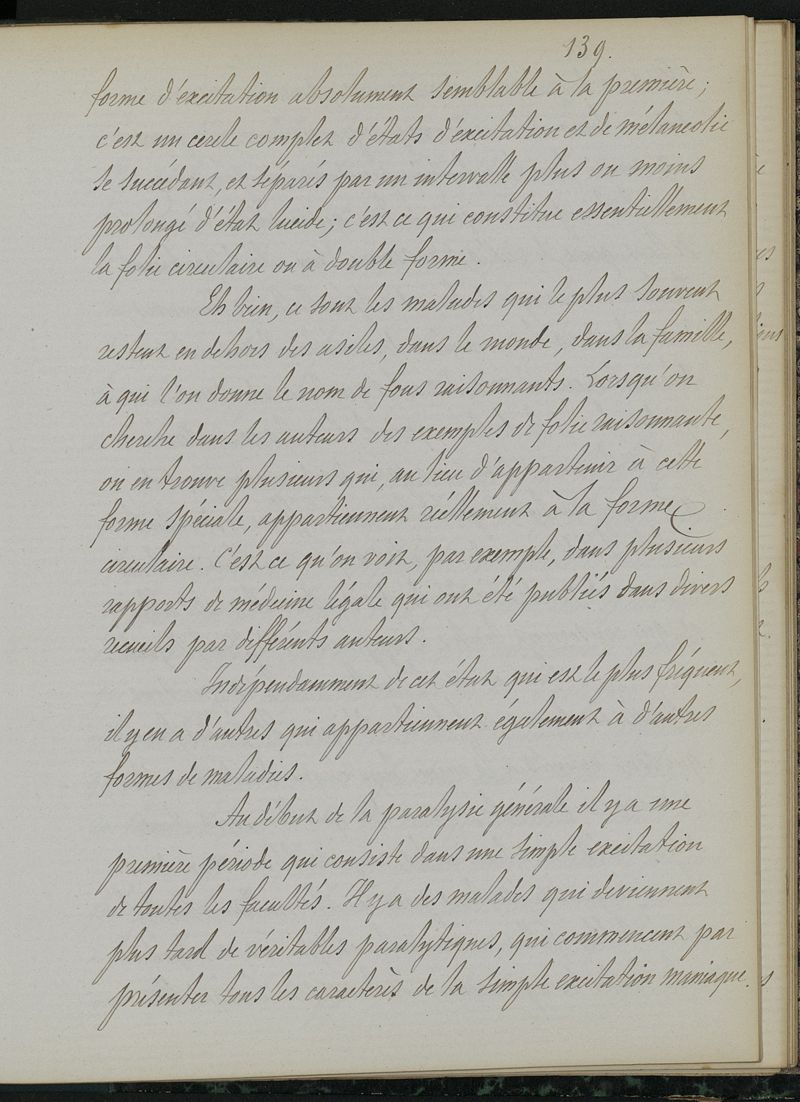 139.
forme d'excitation absolument semblable à la première;
c'est un cercle complet d'états d'excitation et de mélancolie
se succédant, et séparés par un intervalle plus ou moins
prolongé d'état lucide; c'est ce qui constitue essentiellement
la folie circulaire ou à double forme.
Eh bien, ce sont les malades qui le plus souvent
restent en dehors des asiles, dans le monde, dans la famille,
à qui l'on donne le nom de fous raisonnants. Lorsqu'on
cherche dans les auteurs des exemples de folie raisonnante,
on en trouve plusieurs qui, au lieu d'appartenir à cette
forme spéciale, appartiennent réellement à la forme
circulaire. C'est ce qu'on voit, par exemple, dans plusieurs
rapports de médecine légale qui ont été publiés dans divers
recueils par différents auteurs.
Indépendamment de cet état qui est le plus fréquent,
il y en a d'autres qui appartiennent également à d'autres
formes de maladies.
Au début de la paralysie générale il y a une
première période qui consiste dans une simple excitation
de toutes les facultés. Il y a des malades qui deviennent
plus tard de véritables paralytiques, qui commencent par
présenter tous les caractères de la simple excitation maniaque.